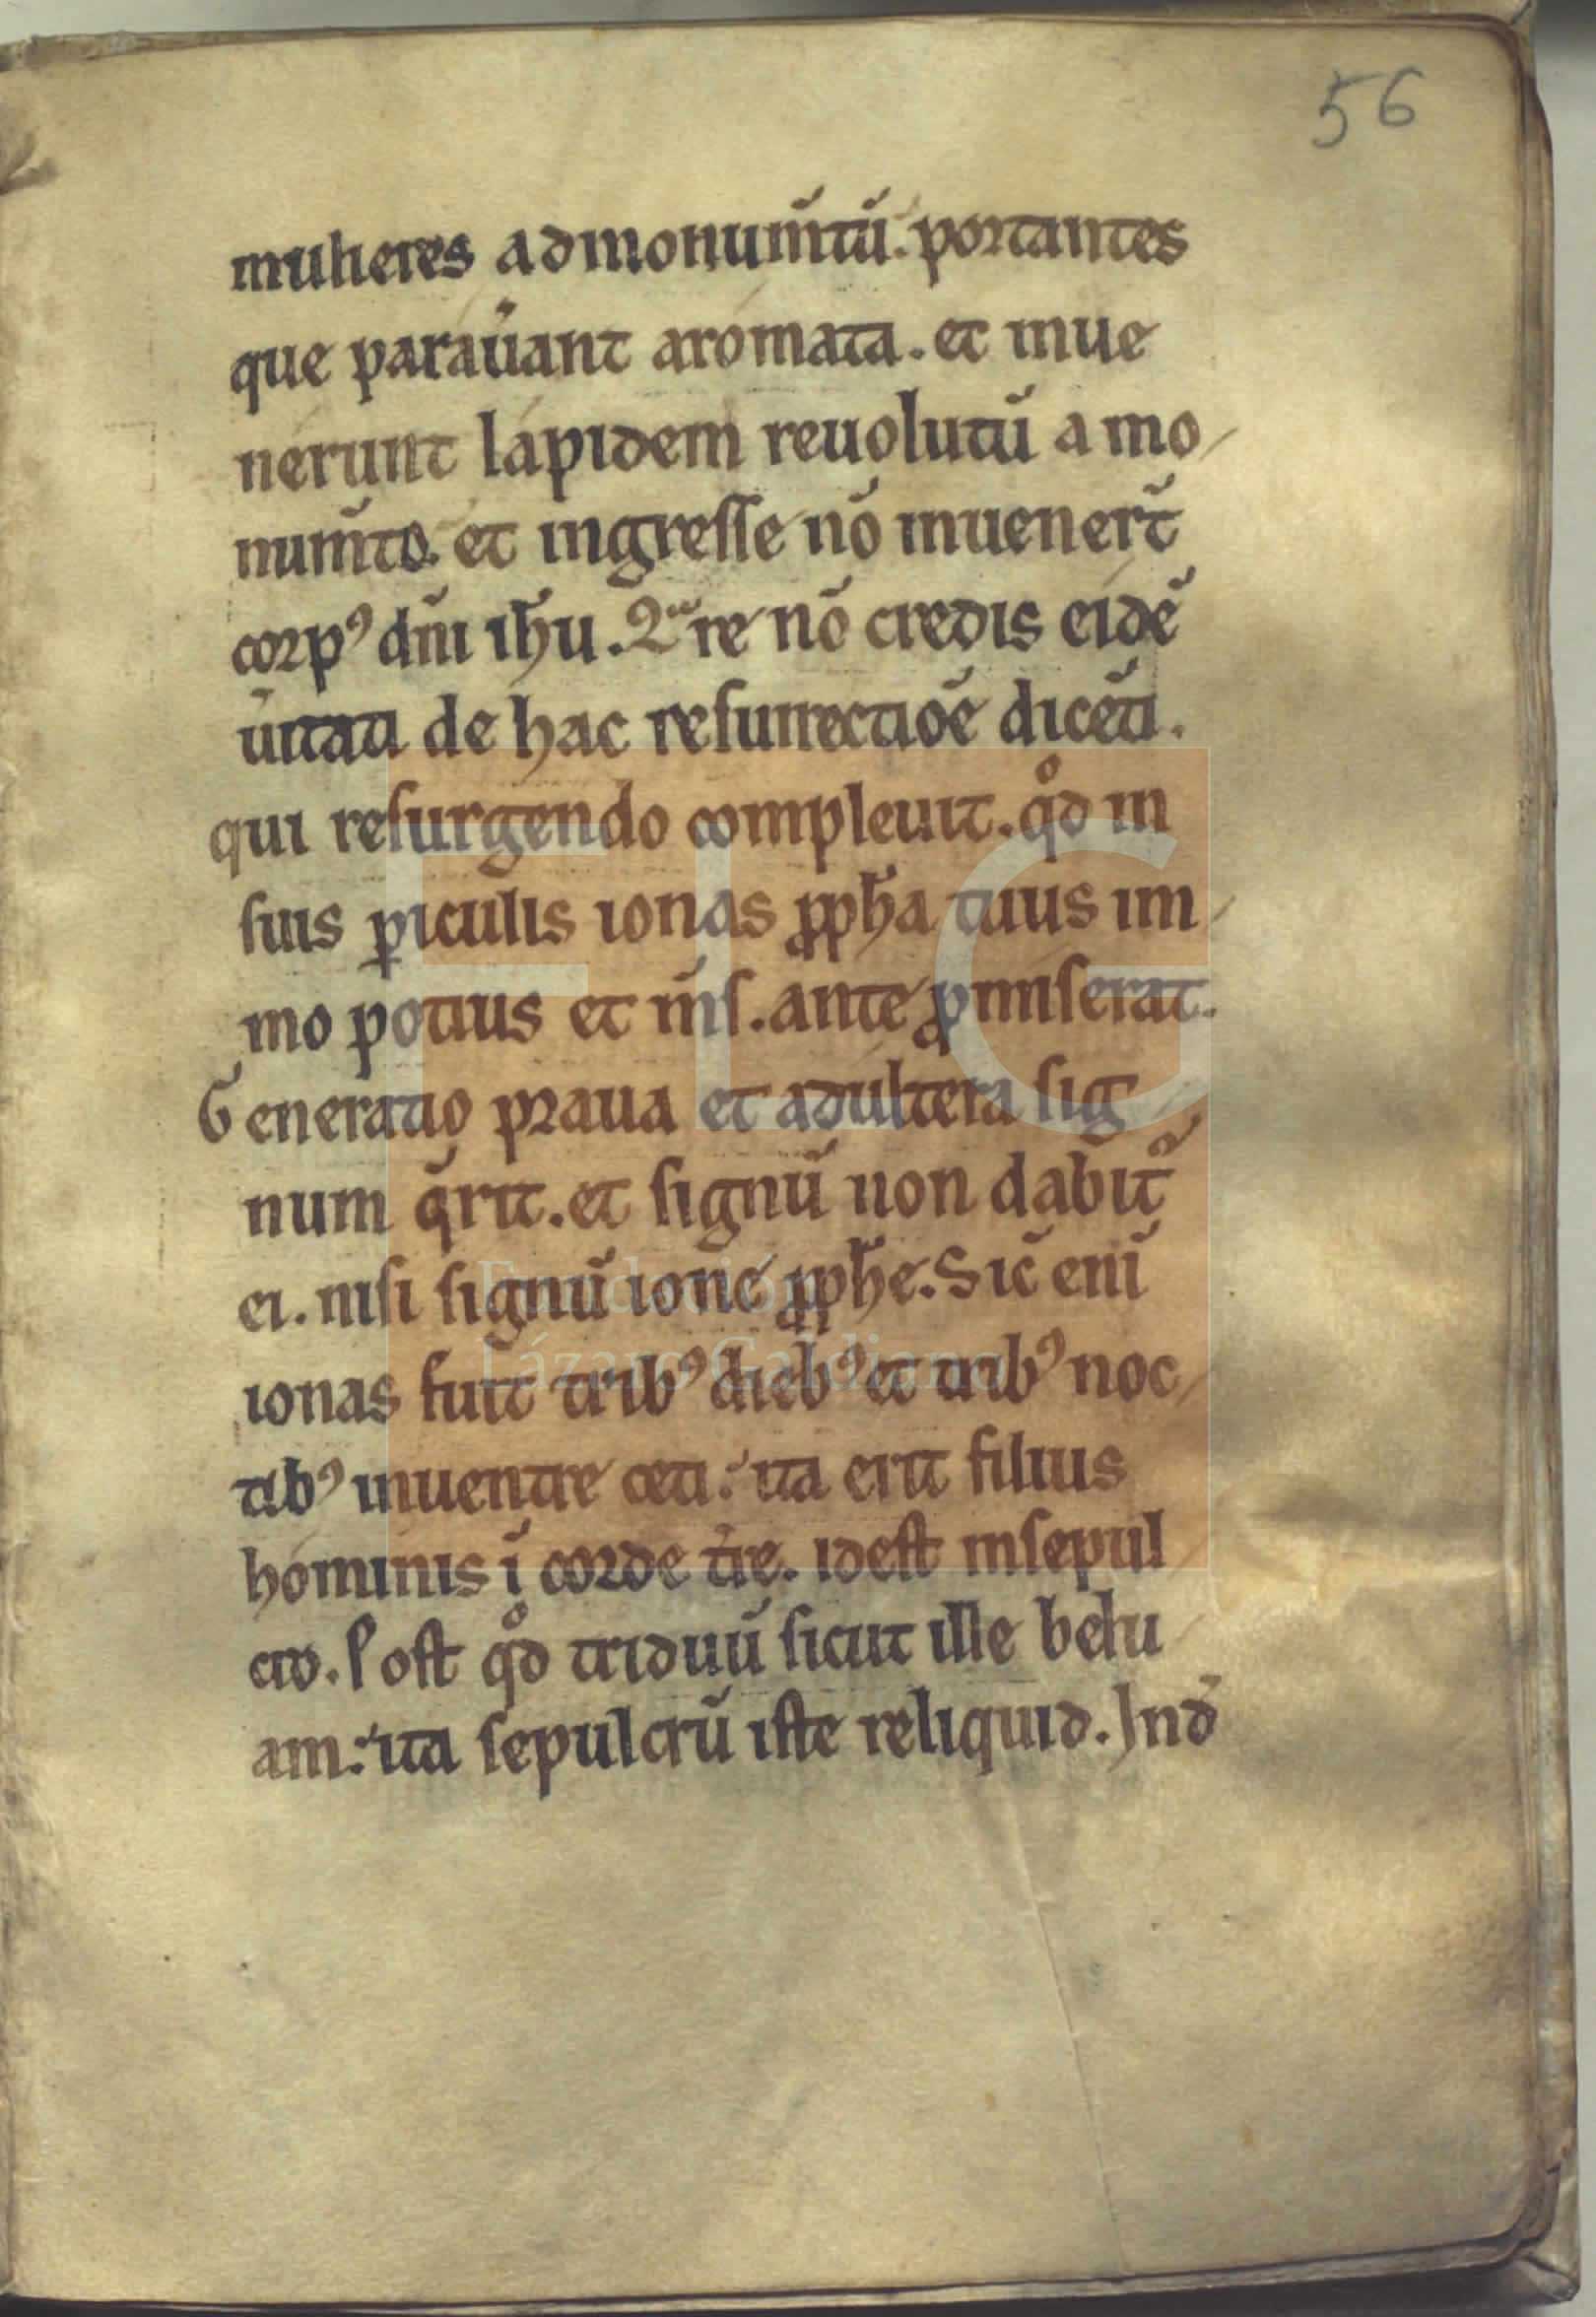 56
mulieres ad monum̄tū. portantes
que paraūant aromata. et inue
nerunt lapidem reuolutū a mo
num̄to. et ingresse nō inuener̄t
corpꝰ dn̄i ih̄u. Quare nō credis eidē
ūitati de hac resurrectiōe dicēti.
qui resurgendo compleuit. qͦd in
suis ꝑiculis ionas ꝓph̄a tuus im
mo potius et n̄s. ante ꝓmiserat.
Generatio praua et adultera sig
num q̄rit. et signū non dabit᷑
ei. nisi signū ione ꝓph̄e. Sic̄ enī
ionas fuit tribꝰ diebꝰ et tribꝰ noc
tibꝰ inuentre ceti: ita erit filius
hominis ī corde t̄re. idest insepul
cro. Post qͦd triduū sicut ille belu
am: ita sepulcrū iste reliquid. Ind̄
FLG
Fundación
Lázaro Galdiano